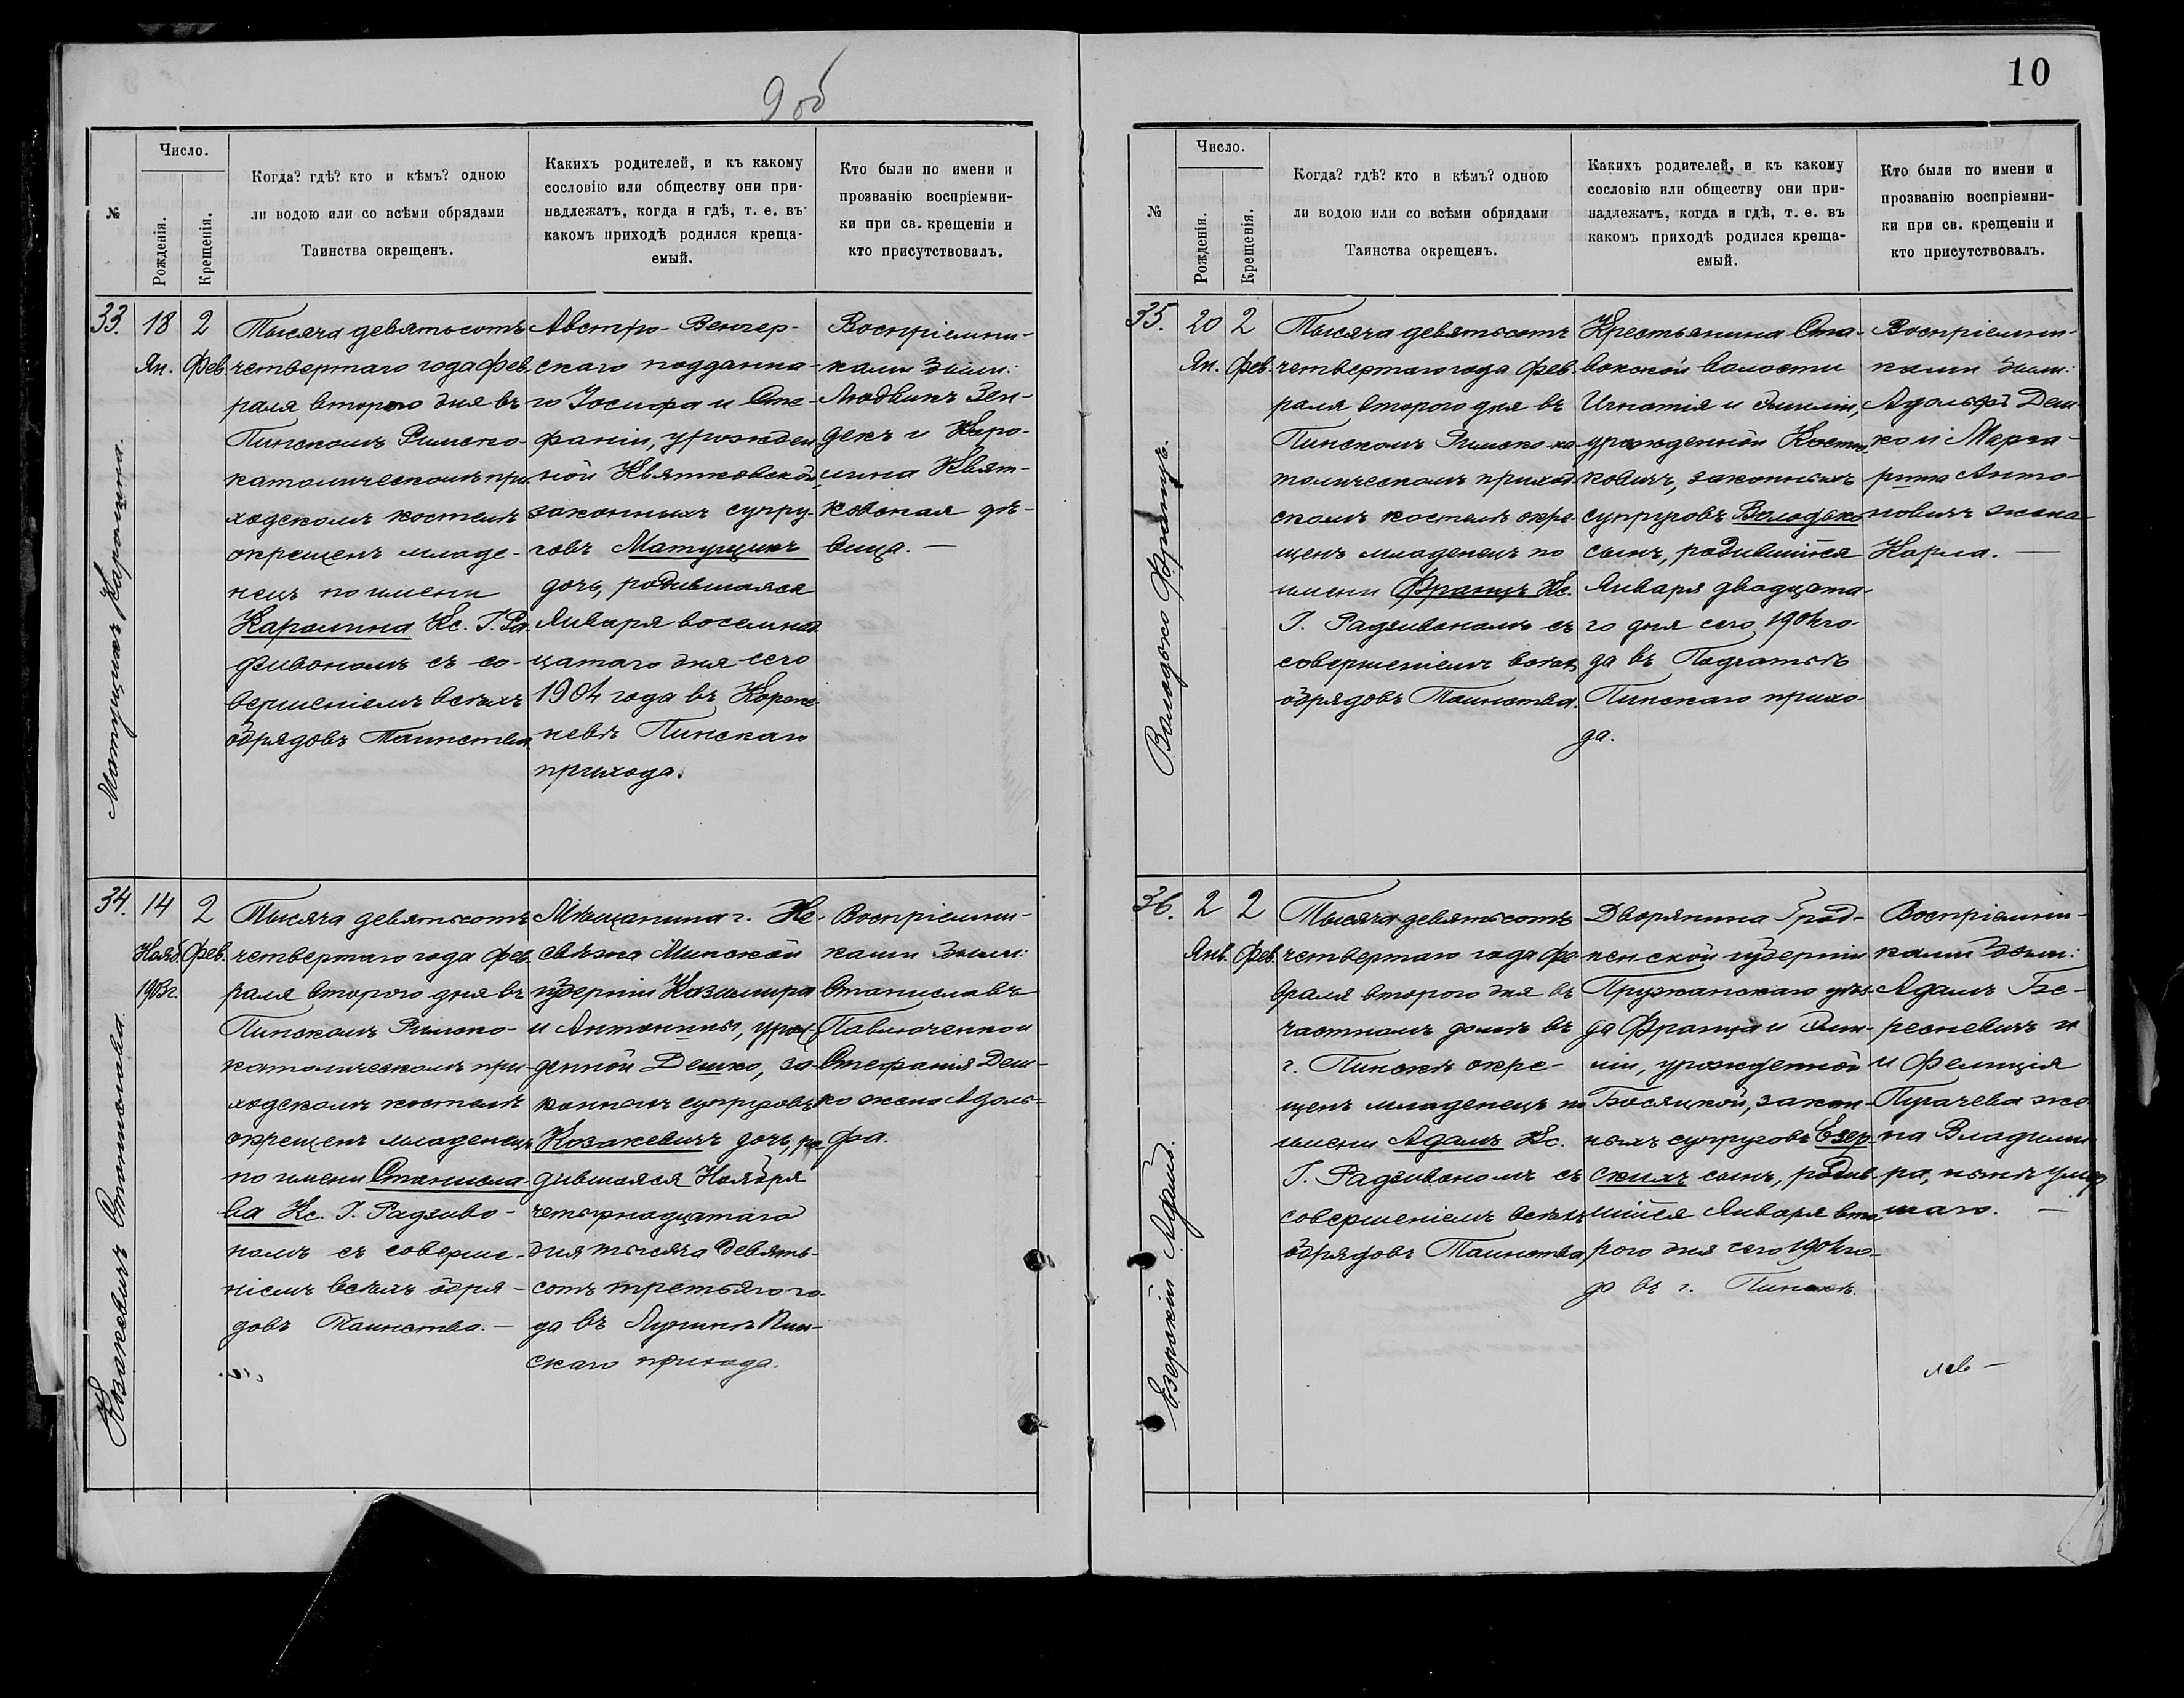 9 об
№
Число.
Рожденія.
Крещенія.
Когда? гдѣ? кто и кѣмъ? одною
ли водою или со всѣми обрядами
Таинства окрещенъ.
Какихъ родителей, и къ какому
сословію или обществу они при-
надлежатъ, когда и гдѣ, т. е. въ
какомъ приходѣ родился креща-
емый.
Кто были по имени и
прозванію воспріемни-
ки при св. крещеніи и
кто присутствовалъ.
33.
Матущикъ Каролина.
18
Ян.
2
Фев.
Тысяча девятьсотъ
четвертаго года фев-
раля второго дня въ
Пинскомъ Римско-
католическомъ при-
ходскомъ костелѣ
окрещенъ младе-
нецъ по имени
Каролина Кс. I. Ра-
дзивономъ съ со-
вершеніемъ всѣхъ
обрядовъ Таинства.
Австро-Венгер-
скаго подданна-
го Іосифа и Сте-
фаніи, урожден-
ной Квятковской,
законныхъ супру-
говъ Матущикъ
дочь, родившаяся
Января восемнад-
цатаго дня сего
1904 года въ
Пинскаго
прихода.
Воспріемни-
ками были:
Людвикъ Зен-
декъ и Каро-
лина Квят-
ковская дѣ-
вица. —
34.
Козакевичъ Станислава.
14
Нояб.
1903г.
2
Фев.
Тысяча девятьсотъ
четвертаго года фев-
раля второго дня въ
Пинскомъ Римско-
католическомъ при-
ходскомъ костелѣ
окрещенъ младенецъ
по имени Станисла-
ва Кс. I. Радзиво-
номъ съ соверше-
ніемъ всѣхъ обря-
довъ Таинства. —
Мѣщанина г. Не-
свѣжа Минской
губерніи Казимира
и Антонины, урож-
денной Дешко, за-
конныхъ супруговъ
Козакевичъ дочь, ро-
дившаяся Ноября
четырнадцатаго
дня тысяча девять-
сотъ третьяго го-
да въ Пин-
скаго прихода.
Воспріемни-
ками были:
Станиславъ
Павлюченко и
Стефанія Деш-
ко жена Адоль-
фа.
10
№
Число.
Рожденія.
Крещенія.
Когда? гдѣ? кто и кѣмъ? одною
ли водою или со всѣми обрядами
Таинства окрещенъ.
Какихъ родителей, и къ какому
сословію или обществу они при-
надлежатъ, когда и гдѣ, т. е. въ
какомъ приходѣ родился креща-
емый.
Кто были по имени и
прозванію воспріемни-
ки при св. крещеніи и
кто присутствовалъ.
35.
Володько Францъ.
20
Ян.
2
Фев.
Тысяча девятьсотъ
четвертаго года фев-
раля второго дня въ
Пинскомъ Римско-ка-
толическомъ приход-
скомъ костелѣ окре-
щенъ младенецъ по
имени Францъ Кс.
I. Радзивономъ съ
совершеніемъ всѣхъ
обрядовъ Таинства.
Крестьянина Ста-
вокской волости
Игнатія и Эмиліи,
урожденной Костю-
ковичъ, законныхъ
супруговъ Володько
сынъ, родившійся
Января двадцата-
го дня сего 1904 го-
да въ
Пинскаго прихо-
да.
Воспріемни-
ками были:
Адольфъ Деш-
ко и Марга-
рита Анто-
новичъ жена
Карла. —
36.
Езерскій Адамъ.
2
Янв.
2
Фев.
Тысяча девятьсотъ
четвертаго года фе-
враля второго дня въ
частномъ домѣ въ
г. Пинскѣ окре-
щенъ младенецъ по
имени Адамъ Кс.
I. Радзивономъ съ
совершеніемъ всѣхъ
обрядовъ Таинства,
Дворянина Грод-
ненской губерніи
Пружанскаго уѣз-
да Франца и Эми-
ліи, урожденной
Босяцкой, закон-
ныхъ супруговъ Езер-
скихъ сынъ, родив-
шійся Января вто-
рого дня сего 1904 го-
да въ г. Пинскѣ.
Воспріемни-
ками были:
Адамъ Бе-
ресневичъ и
и Фелиція
Пугачева же-
на Владими-
ра, нынѣ умер-
шаго. —